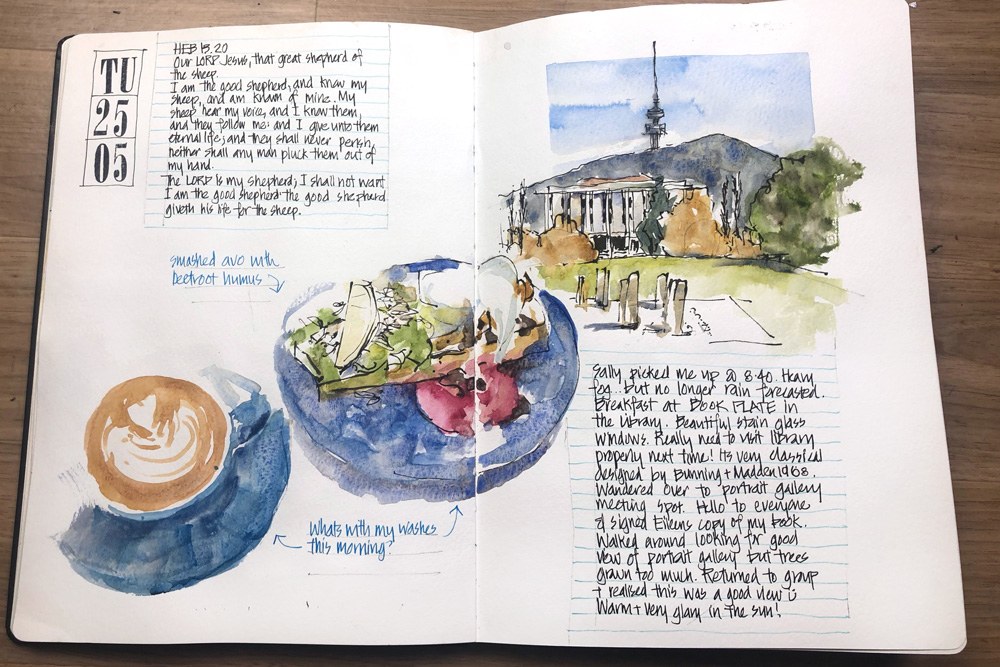 TU
25
05
HEB 13.20
Our LORD Jesus, that great shepherd of
the sheep.
I am the good shepherd, and know my
sheep, and am known of mine. My
sheep hear my voice, and I know them,
and they follow me: and I give unto them
eternal life; and they shall never perish,
neither shall any man pluck them out of
my hand.
The LORD is my shepherd; I shall not want
I am the good shepherd: the good shepherd
giveth his life for the sheep.
smashed avo with
beetroot humus
Whats with my washes
this morning?
Sally picked me up @ 8.40. Heavy
fog. but no longer rain forecasted.
Breakfast at BOOK PLATE in
the library. Beautiful stain glass
windows. Really need to visit library
properly next time! Its very classical
designed by Bunning + Madden 1968.
Wandered over to portrait gallery
meeting spot. Hello to everyone
& signed Eileens copy of my book.
Walked around looking for good
view of portrait gallery but trees
grown too much. Returned to group
+ realised this was a good view
Warm + very glary in the sun!